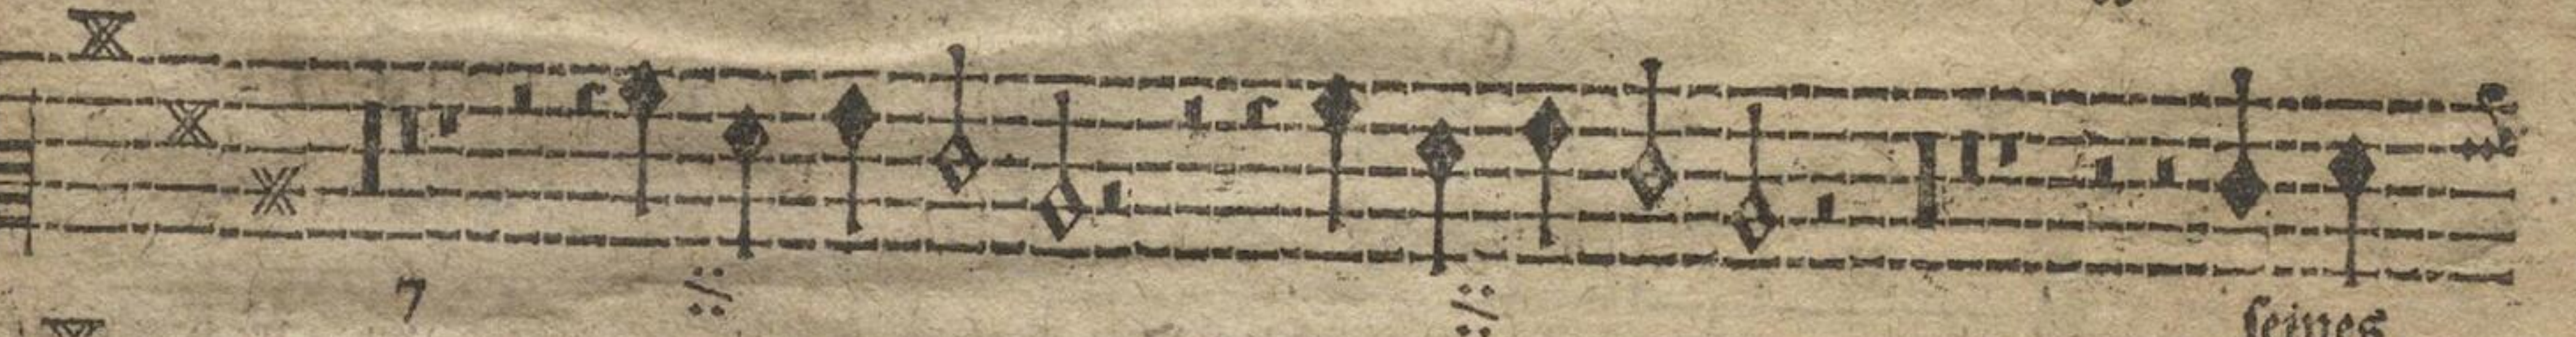 7 :/: :/: seines